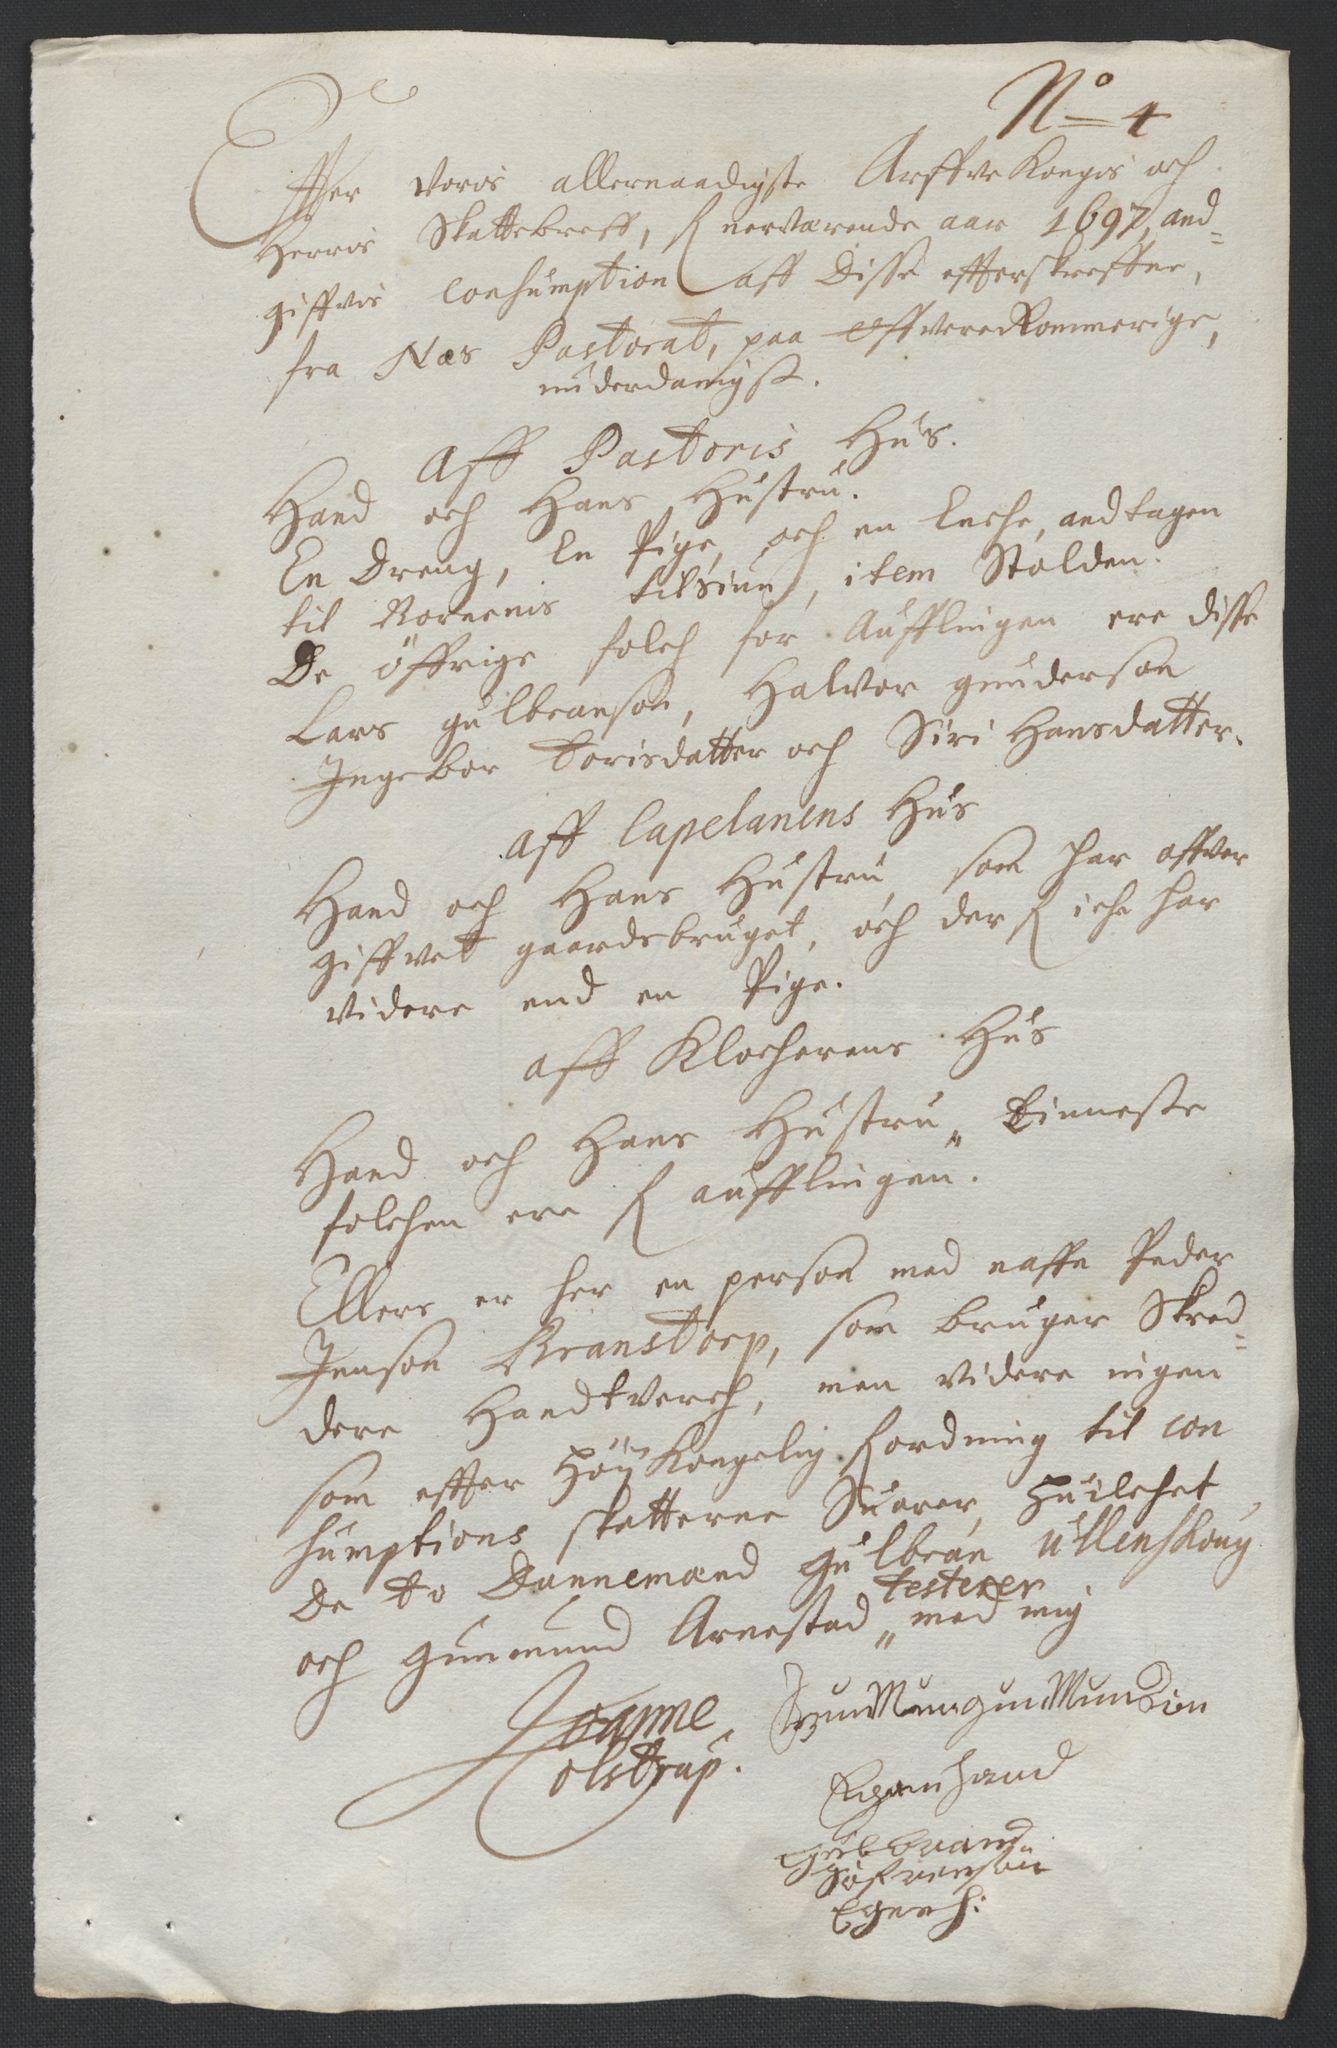 No 4
Effter Voris allernaadigste Arffve Kongis och
Herris Skattebreff, i nerværende aar 1697, and=
giffvis Conhumption aff disse effterskreffne,
fra Næs Pastorat, paa Offvere Rommerige,
underdanigst.
Aff Pastoris Hus.
Hand och Hans Hustru.
En Dreng, En Pige, och en Enche, andtagen
til Kornenis tilsiun, item Stolden.
De öffrige folch for Aufflingen ere disse
Lars gulbranson, Halvor gunderson
Ingebor Torisdatter och Siri Hansdatter.
Aff Capelanens Hus
Hand och Hans Hustru, som har offver
giffvet gaardsbruget, och derfor iche har
videre end en Pige.
aff Klocherens Hus
Hand och Hans Hustru, Tienneste
folchen ere for aufflingen.
Ellers er her en person med naffn Peder
Jenson Branstorp, som bruger Skred=
dere Handtverch, men videre ingen
som effter Höy Kongelig forordning til con
humptions skatterne Suarer, Huilchet
De to Dannemænd gulbran Ullenshoug
och gunmund Arnestad testerer med mig
Joanne
Colstrup.
gunMun gunMundSøn
Egenhand
Gulbrand
Egenh: